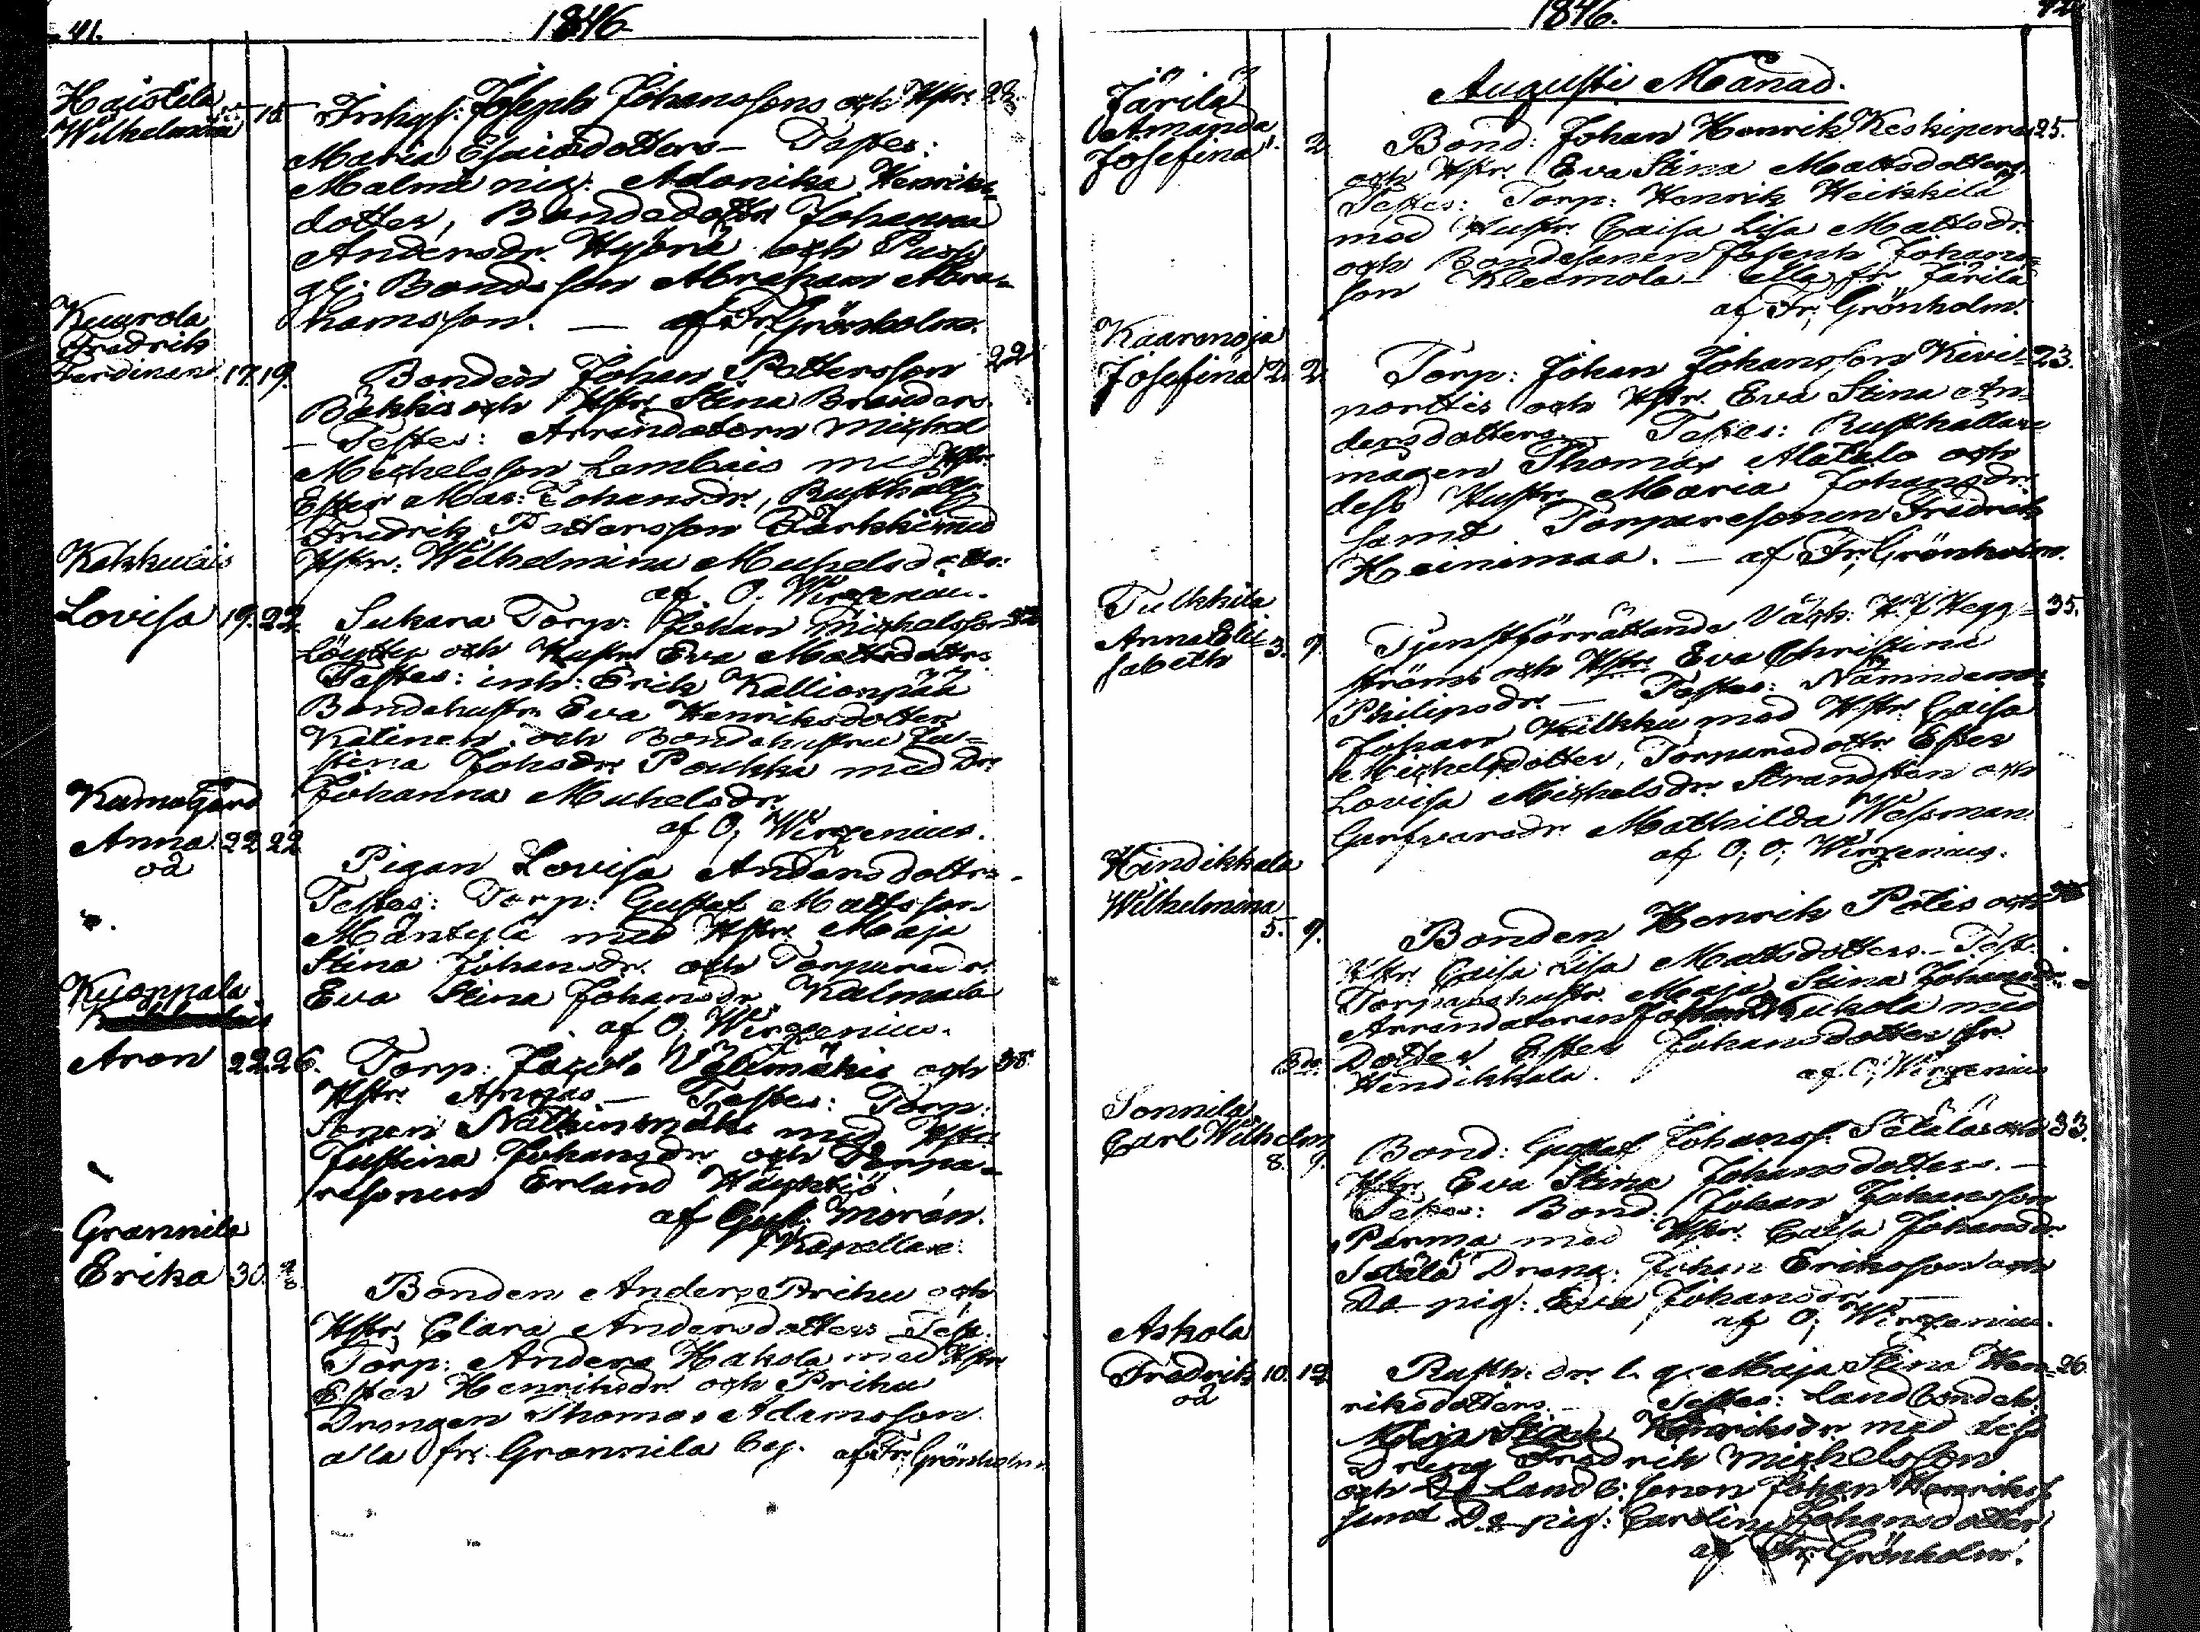 41.
1846
Haistila
Wilhelmina 15. 18.
Inhys: Joseph Johanssons och Hstr: 28
Maria Esaiædotters — Testes:
Malmi pig: Adonika Henriks
dotter, Bondedottr Johanna
Andersdr. Hyörä och
Bondeson Abraham Abra-
hamsson. — af Fr. Grönholm.
Kuurola
Fredrik
Ferdinan 17. 19.
Bonden Johan Pettersson 22
Bäkkis och Hstr Stina Branders
— Testes: Arrindatorn Michel
Michelsson Lambais med Hstr
Ester Mar: Johansdr, Rusthåll:
Fredrik Pettersson Särkki med
Hstr: Wilhelmina Michelsdotter
af O. Wirzenius.
Kakkulais
Lovisa 19. 22.
Sukara Torp: Johan Michelsson 32
Löytty och Hustr Eva Mattsdotters
Testes: inh: Erik Kallionpää
Bondehustr Eva Henriksdotter
Kitinen och Bondehustru Ju-
stina Johsdr Poukka med Dr
Johanna Michelsdr.
af O. Wirzenius.
Kumogård
Anna 22 22
oä
Pigan Lovisa Andersdotters.
Testes: Torp: Gustaf Mattsson
Mäntylä med Hstr Maja
Stina Johansdr. och Torparedr.
Eva Stina Johansdr Kalmala
af O. Wirzenius.
Kuoppala
Aron 22. 26.
Torp: Jacob Välimäkis och 38
Hstr Annas — Testes: Torp:
sonen Nälkinmäki med Hstr
Justina Johansdr och Torpa-
resonen Erland Häyhtiö
af Gust: Morén.
Kapellan:
Grannila
Erika 30. 2/8.
Bonden Anders Prihu och
Hstr Clara Andersdotters Test.
Torp: Anders Hakola med Hstr
Ester Henriksdr och Prihu
Drängen Thomas Adamsson
alla fr: Grannila by. af Fr. Grönholm.
1846.
42.
Augusti Månad.
Järilä
Amanda
Josefina 1. 2.
Bond: Johan Henrik Keskipere 25.
och Hstr. Eva Stina Mattsdotters
Testes: Torp: Henrik Heikkilä
med Hustr. Caisa Lisa Mattsdr.
och Bondesonen Joseph Johans-
son Kleemola — alla fr Järilä
af Fr. Grönholm.
Kaarenoja
Josefina 2. 2.
Torp: Johan Johansson Kivi- 23.
porttis och Hstr. Eva Stina An-
dersdotters — Testes: Rusthållare
magen Thomas Alatalo och
dess Hustr Maria Johansdr.
samt Torparesonen Fredrik
Heinimaa. — af Fr. Grönholm.
Tulkkila
Anna Eli-
sabeth 3. 9.
Tjenstförrättande Välgk: H. J. Hegg- 35.
ströms och Hstr Eva Christina
Philipsdr. — Testes: Nämndem.
Johan Kulkku med Hstr Caisa
Michelsdotter, Torparedottr Ester
Lovisa Michelsdr Strandsten och
Garfvaredr Mathilda Wessman
af O. O. Wirzenius.
Hindikkala
Wilhelmina
5. 9.
Bonden Henrik Potis och 36
Hstr Caisa Lisa Mattsdotters — Test.
Torparehustr. Maja Stina Johansdr.
Arrendatoren Johan Kukola med
Dotter Ester Johansdotter fr.
Hindikkala. af O. Wirzenius
Sonnila
Carl Wilhelm
8. 9.
Bond: Gustaf Johanss. Setäläs och 33.
Hstr Eva Stina Johansdotters. —
Testes: Bond. Johan Johansson
Parma med Hstr: Caisa Johansdr
Setälä Dreng: Johan Eriksson och
Do pig: Eva Johansdr —
af O. Wirzenius.
Askola
Fredrik 10. 12
oä
Rusth: dr. l. q. Maja Stina Hen- 26.
riksdotters. — Testes: Landbondeh.
Maja Stina Henriksdr med dess
Dreng Fredrik Michelsson
och Do Landb: sonen Johan Henrikss
samt Do pig: Carolina Johansdotter
af Fr. Grönholm.